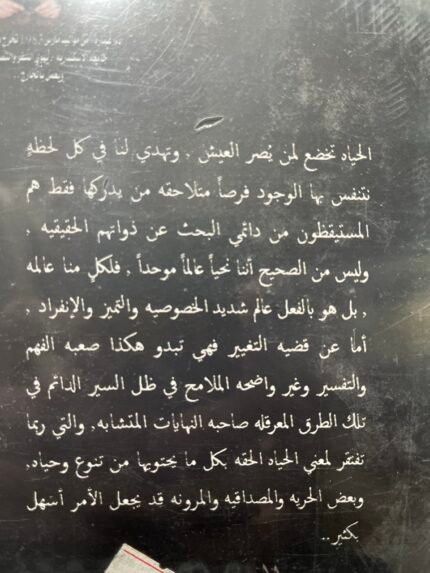 الحياه تخضع لمن يُصر العيش , وتهدي لنا في كل لحظهٍ
نتنفس بها الوجود فرصاً متلاحقه من يدركها فقط هم
المستيقظون من دائمي البحث عن ذواتهم الحقيقيه ,
وليس من الصحيح أننا نحيا عالماً موحداً , فلكلٍ منا عالمه
, بل هو بالفعل عالم شديد الخصوصيه والتميز والإنفراد ,
أما عن قضيه التغيير فهي تبدو هكذا صعبه الفهم
والتفسير وغير واضحه الملامح في ظل السير الدائم في
تلك الطرق المعرقله صاحبه النهايات المتشابه, والتي ربما
تفتقر لمعني الحياه الحقه بكل ما يحتويها من تنوع وحياه,
وبعض الحريه والمصداقيه والمرونه قد يجعل الأمر أسهل
بكثير ..